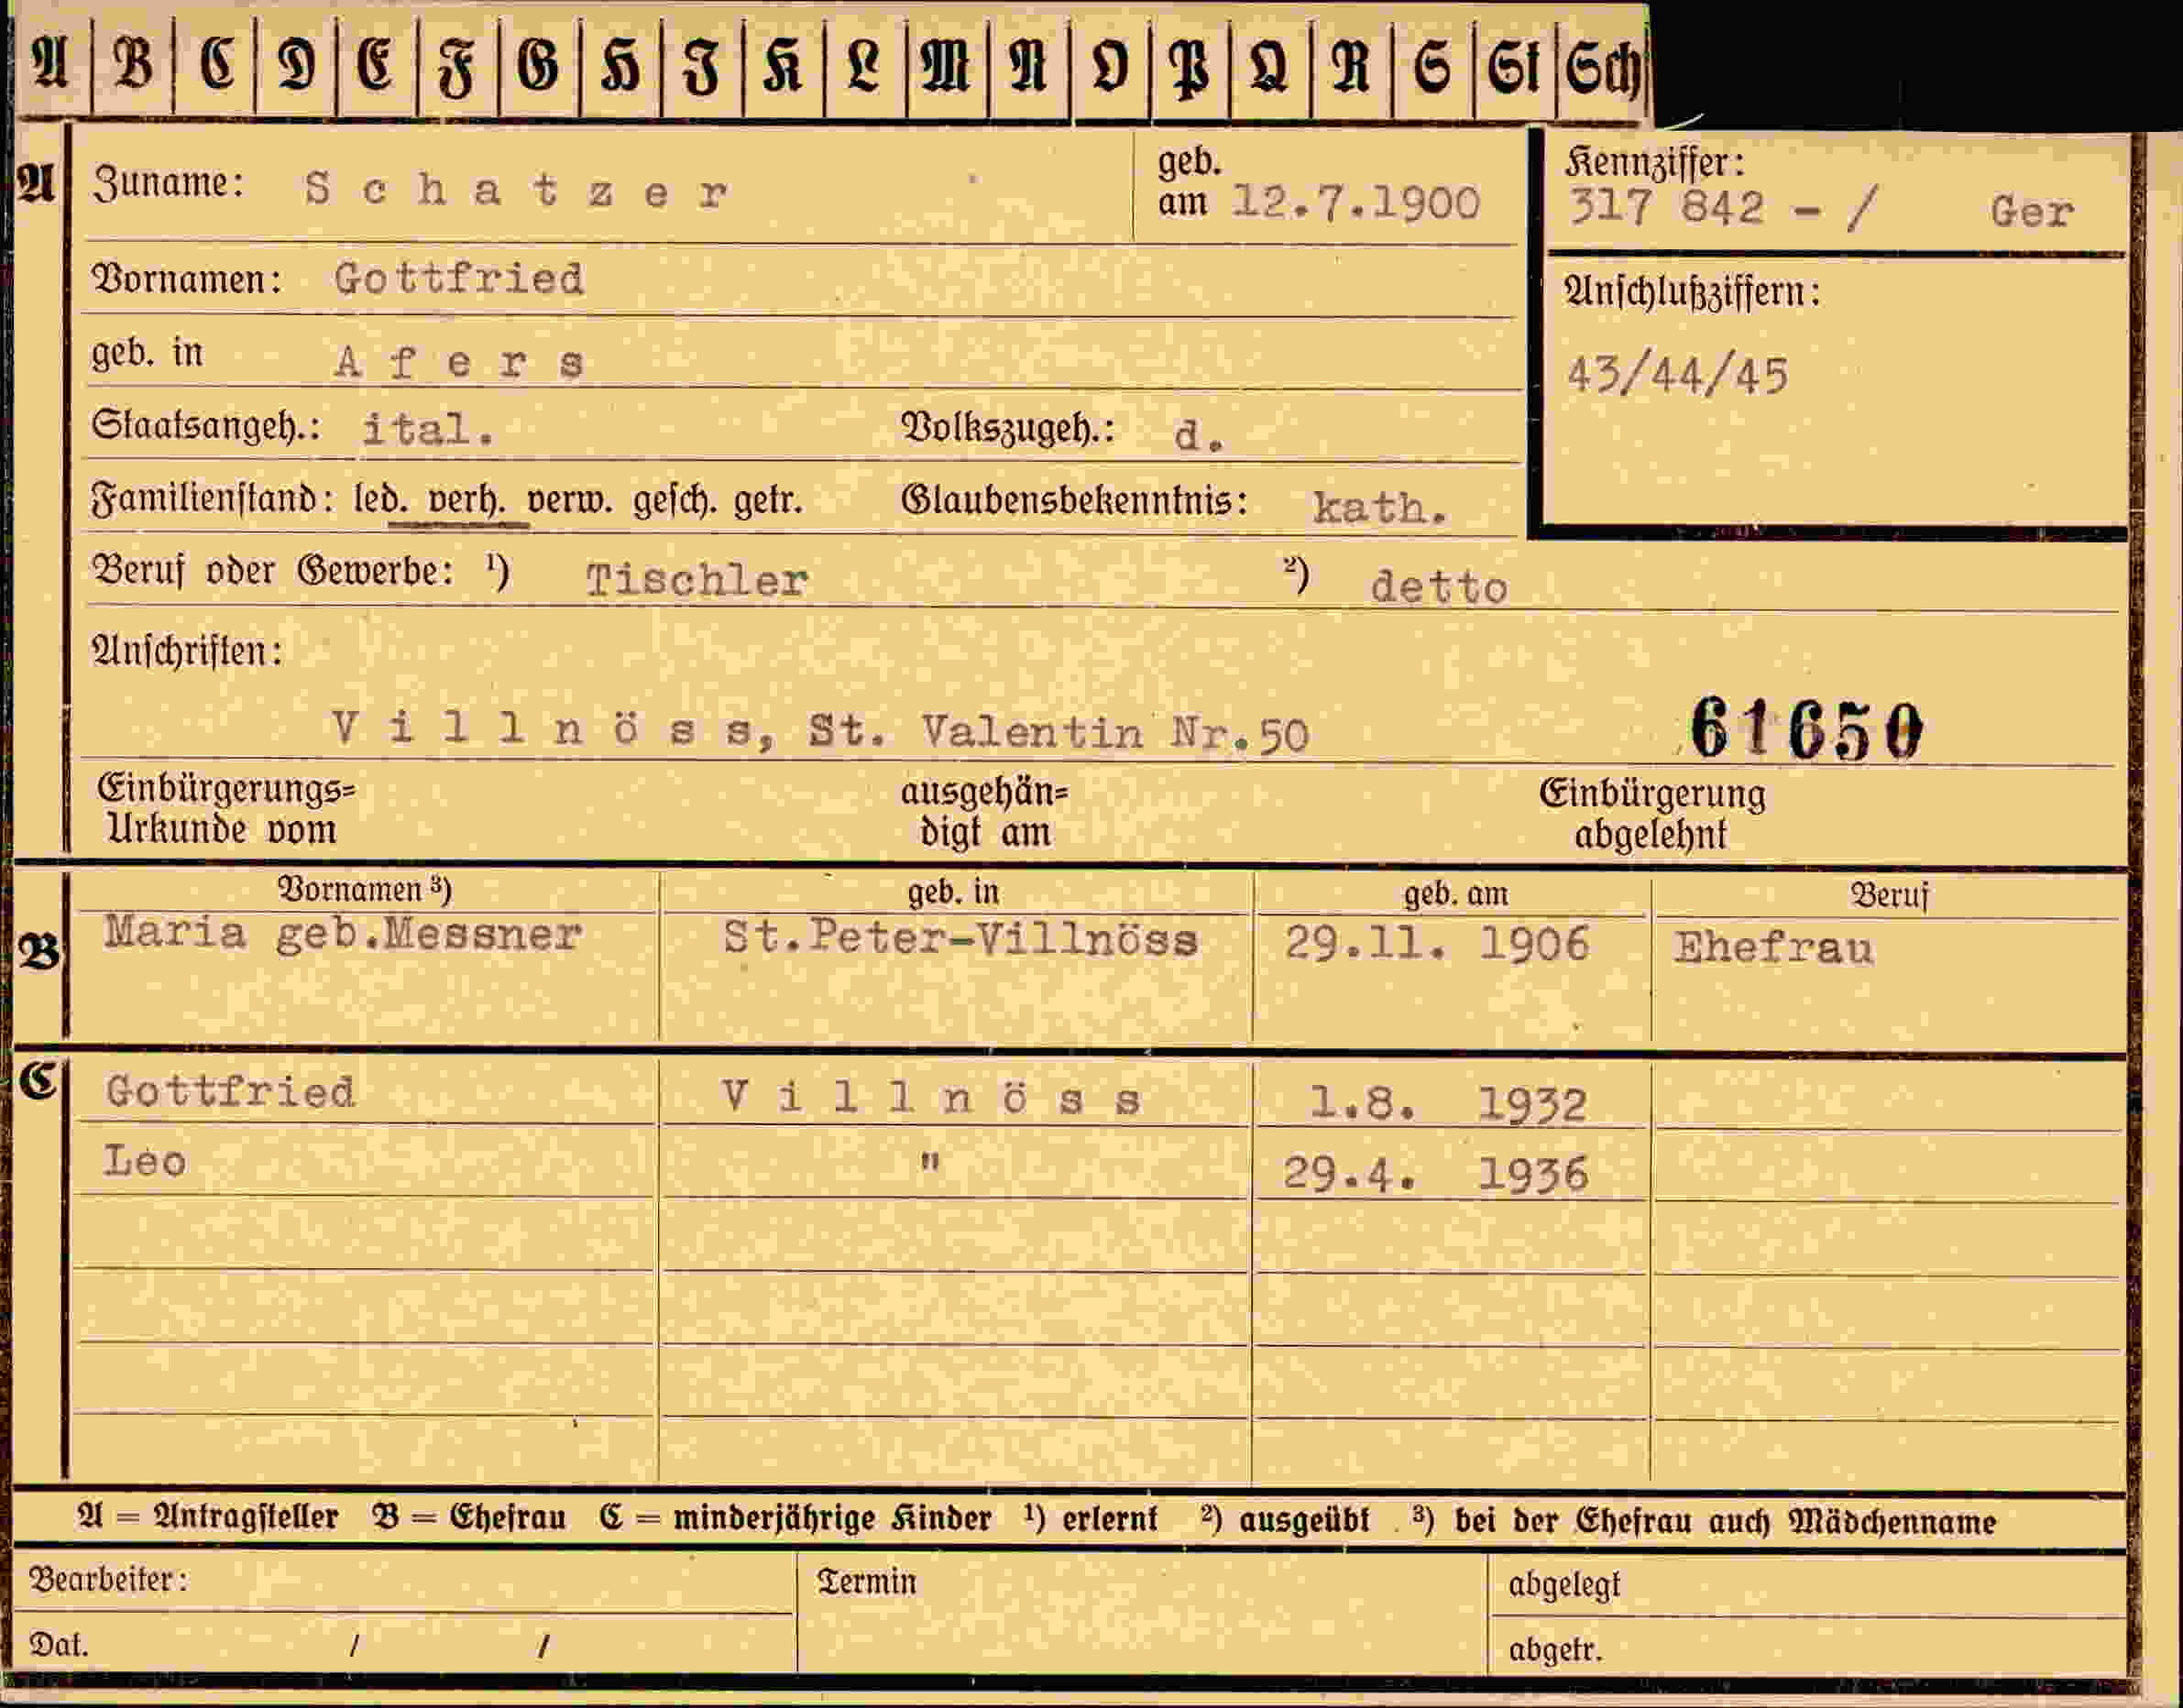 A B C D E F G H I K L M N O P Q R S St Sch
A Zuname: Schatzer geb. am 12.7.1900 Kennziffer: 317 842 - / Ger
Vornamen: Gottfried Anschlußziffern:
geb. in Afers 43/44/45
Staatsangeh.: ital. Volkszugeh.: d.
Familienstand: led. verh. verw. gesch. getr. Glaubensbekenntnis: kath.
Beruf oder Gewerbe: ¹) Tischler ²) detto
Anschriften:
Villnöss, St. Valentin Nr.50 61650
Einbürgerungs= ausgehän= Einbürgerung
Urkunde vom digt am abgelehnt
Vornamen ³) geb. in geb. am Beruf
B Maria geb.Messner St.Peter-Villnöss 29.11. 1906 Ehefrau
C Gottfried Villnöss 1.8. 1932
Leo " 29.4. 1936
A = Antragsteller B = Ehefrau C = minderjährige Kinder ¹) erlernt ²) ausgeübt ³) bei der Ehefrau auch Mädchenname
Bearbeiter: Termin abgelegt
Dat. / / abgetr.